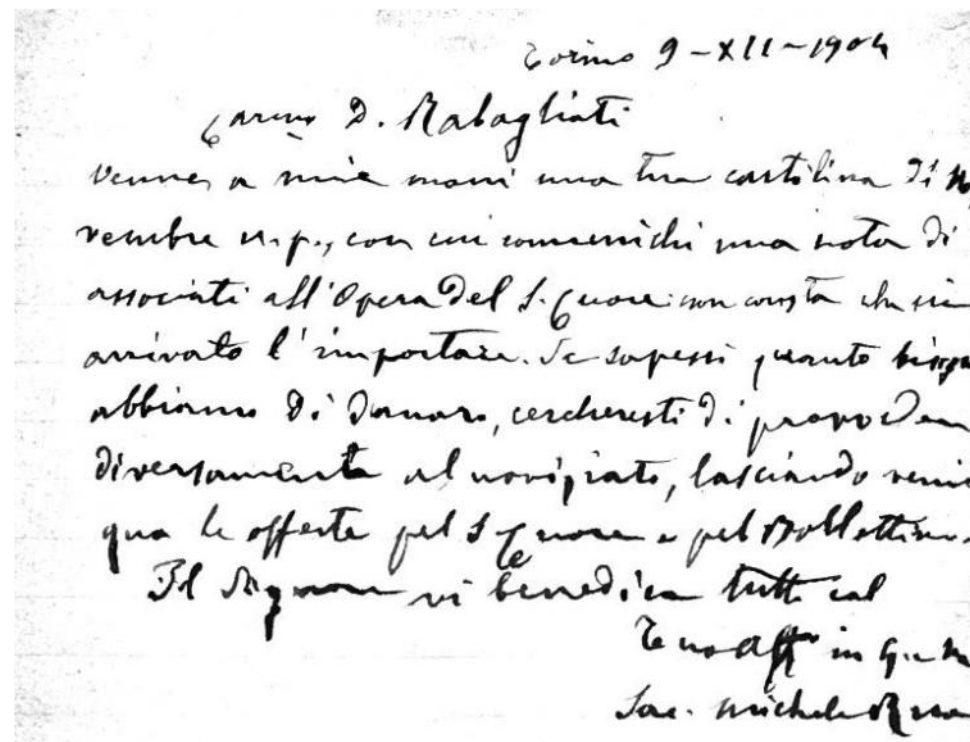 Torino 9-XII-1904
Carmo D. Rabagliati
venne a mie mani una tua cartolina di No
vembre u.p., con cui comunichi una nota di
associati all'Opera del S. Cuore: non consta che sia
arrivato l'importare. Se sapessi quanto bisogn
abbiamo di danaro, cercheresti di provveder
diversamente al noviziato, lasciando venir
qua le offerte pel S. Cuore e pel Bollettino.
Il Signore vi benedica tutti col
Tuo aff in G. e M
Sac. Michele Rua